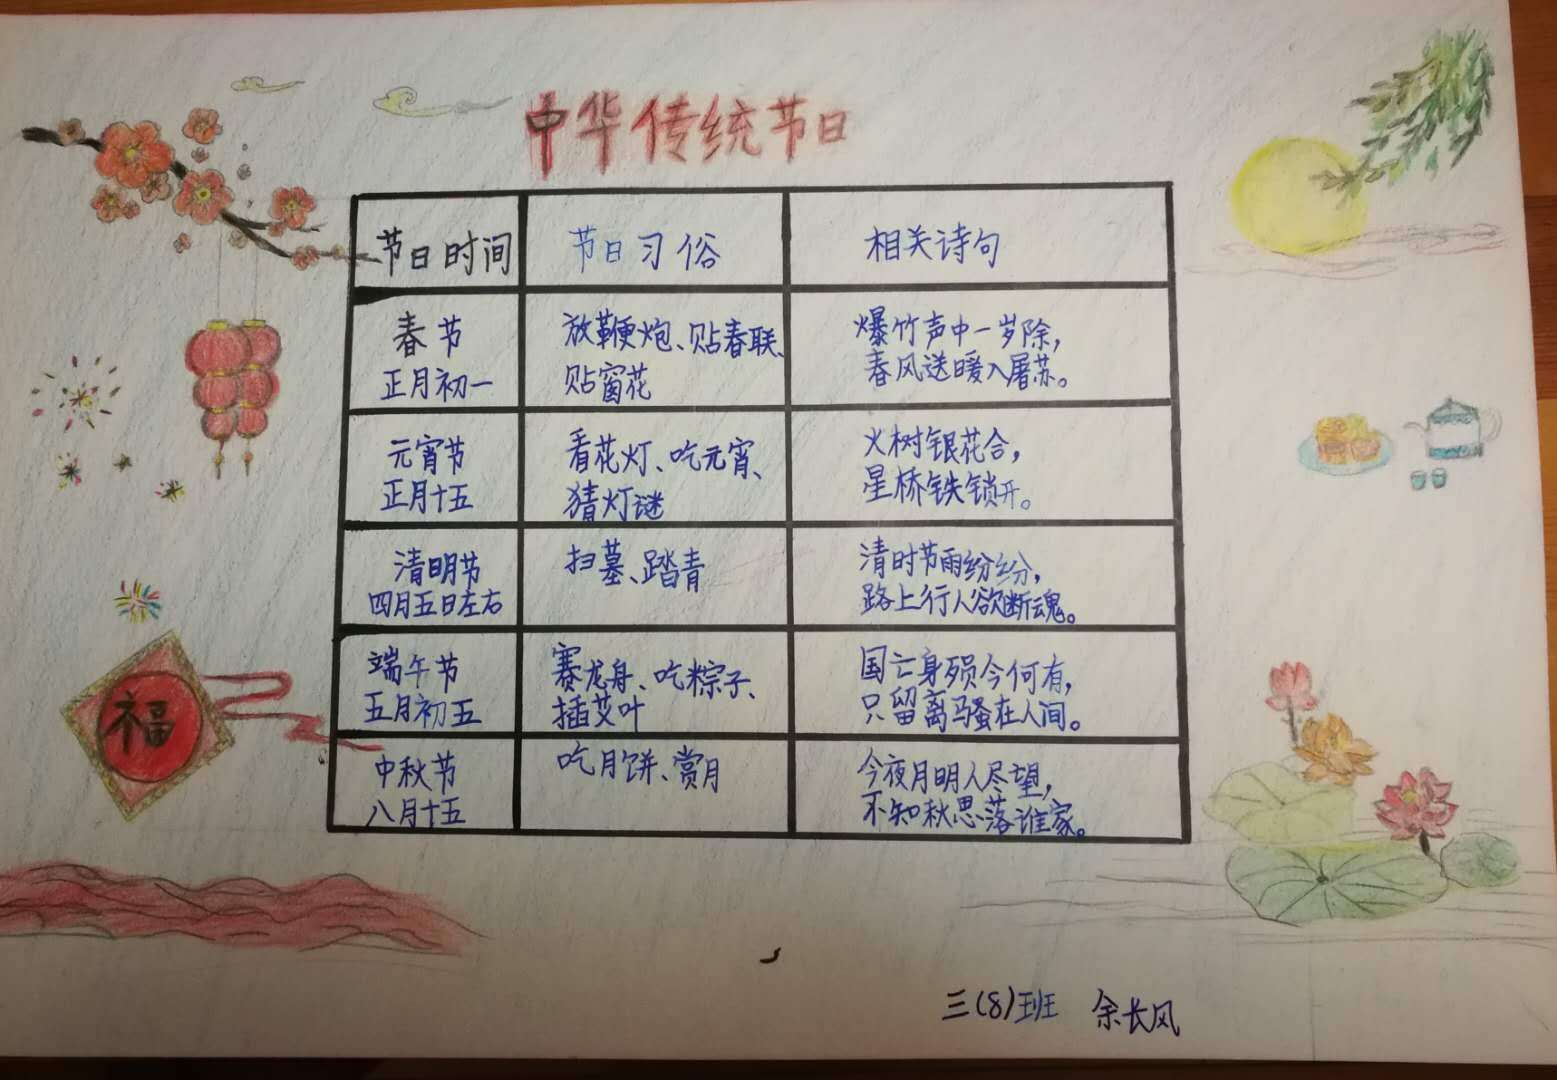 中华传统节日
节日时间 节日习俗 相关诗句
春节
正月初一
放鞭炮、贴春联、
贴窗花
爆竹声中一岁除，
春风送暖入屠苏。
元宵节
正月十五
看花灯、吃元宵、
猜灯谜
火树银花合，
星桥铁锁开。
清明节
四月五日左右
扫墓、踏青
清时节雨纷纷，
路上行人欲断魂。
端午节
五月初五
赛龙舟、吃粽子、
插艾叶
国亡身殒今何有，
只留离骚在人间。
中秋节
八月十五
吃月饼、赏月
今夜月明人尽望，
不知秋思落谁家。
福
三(8)班 余长风